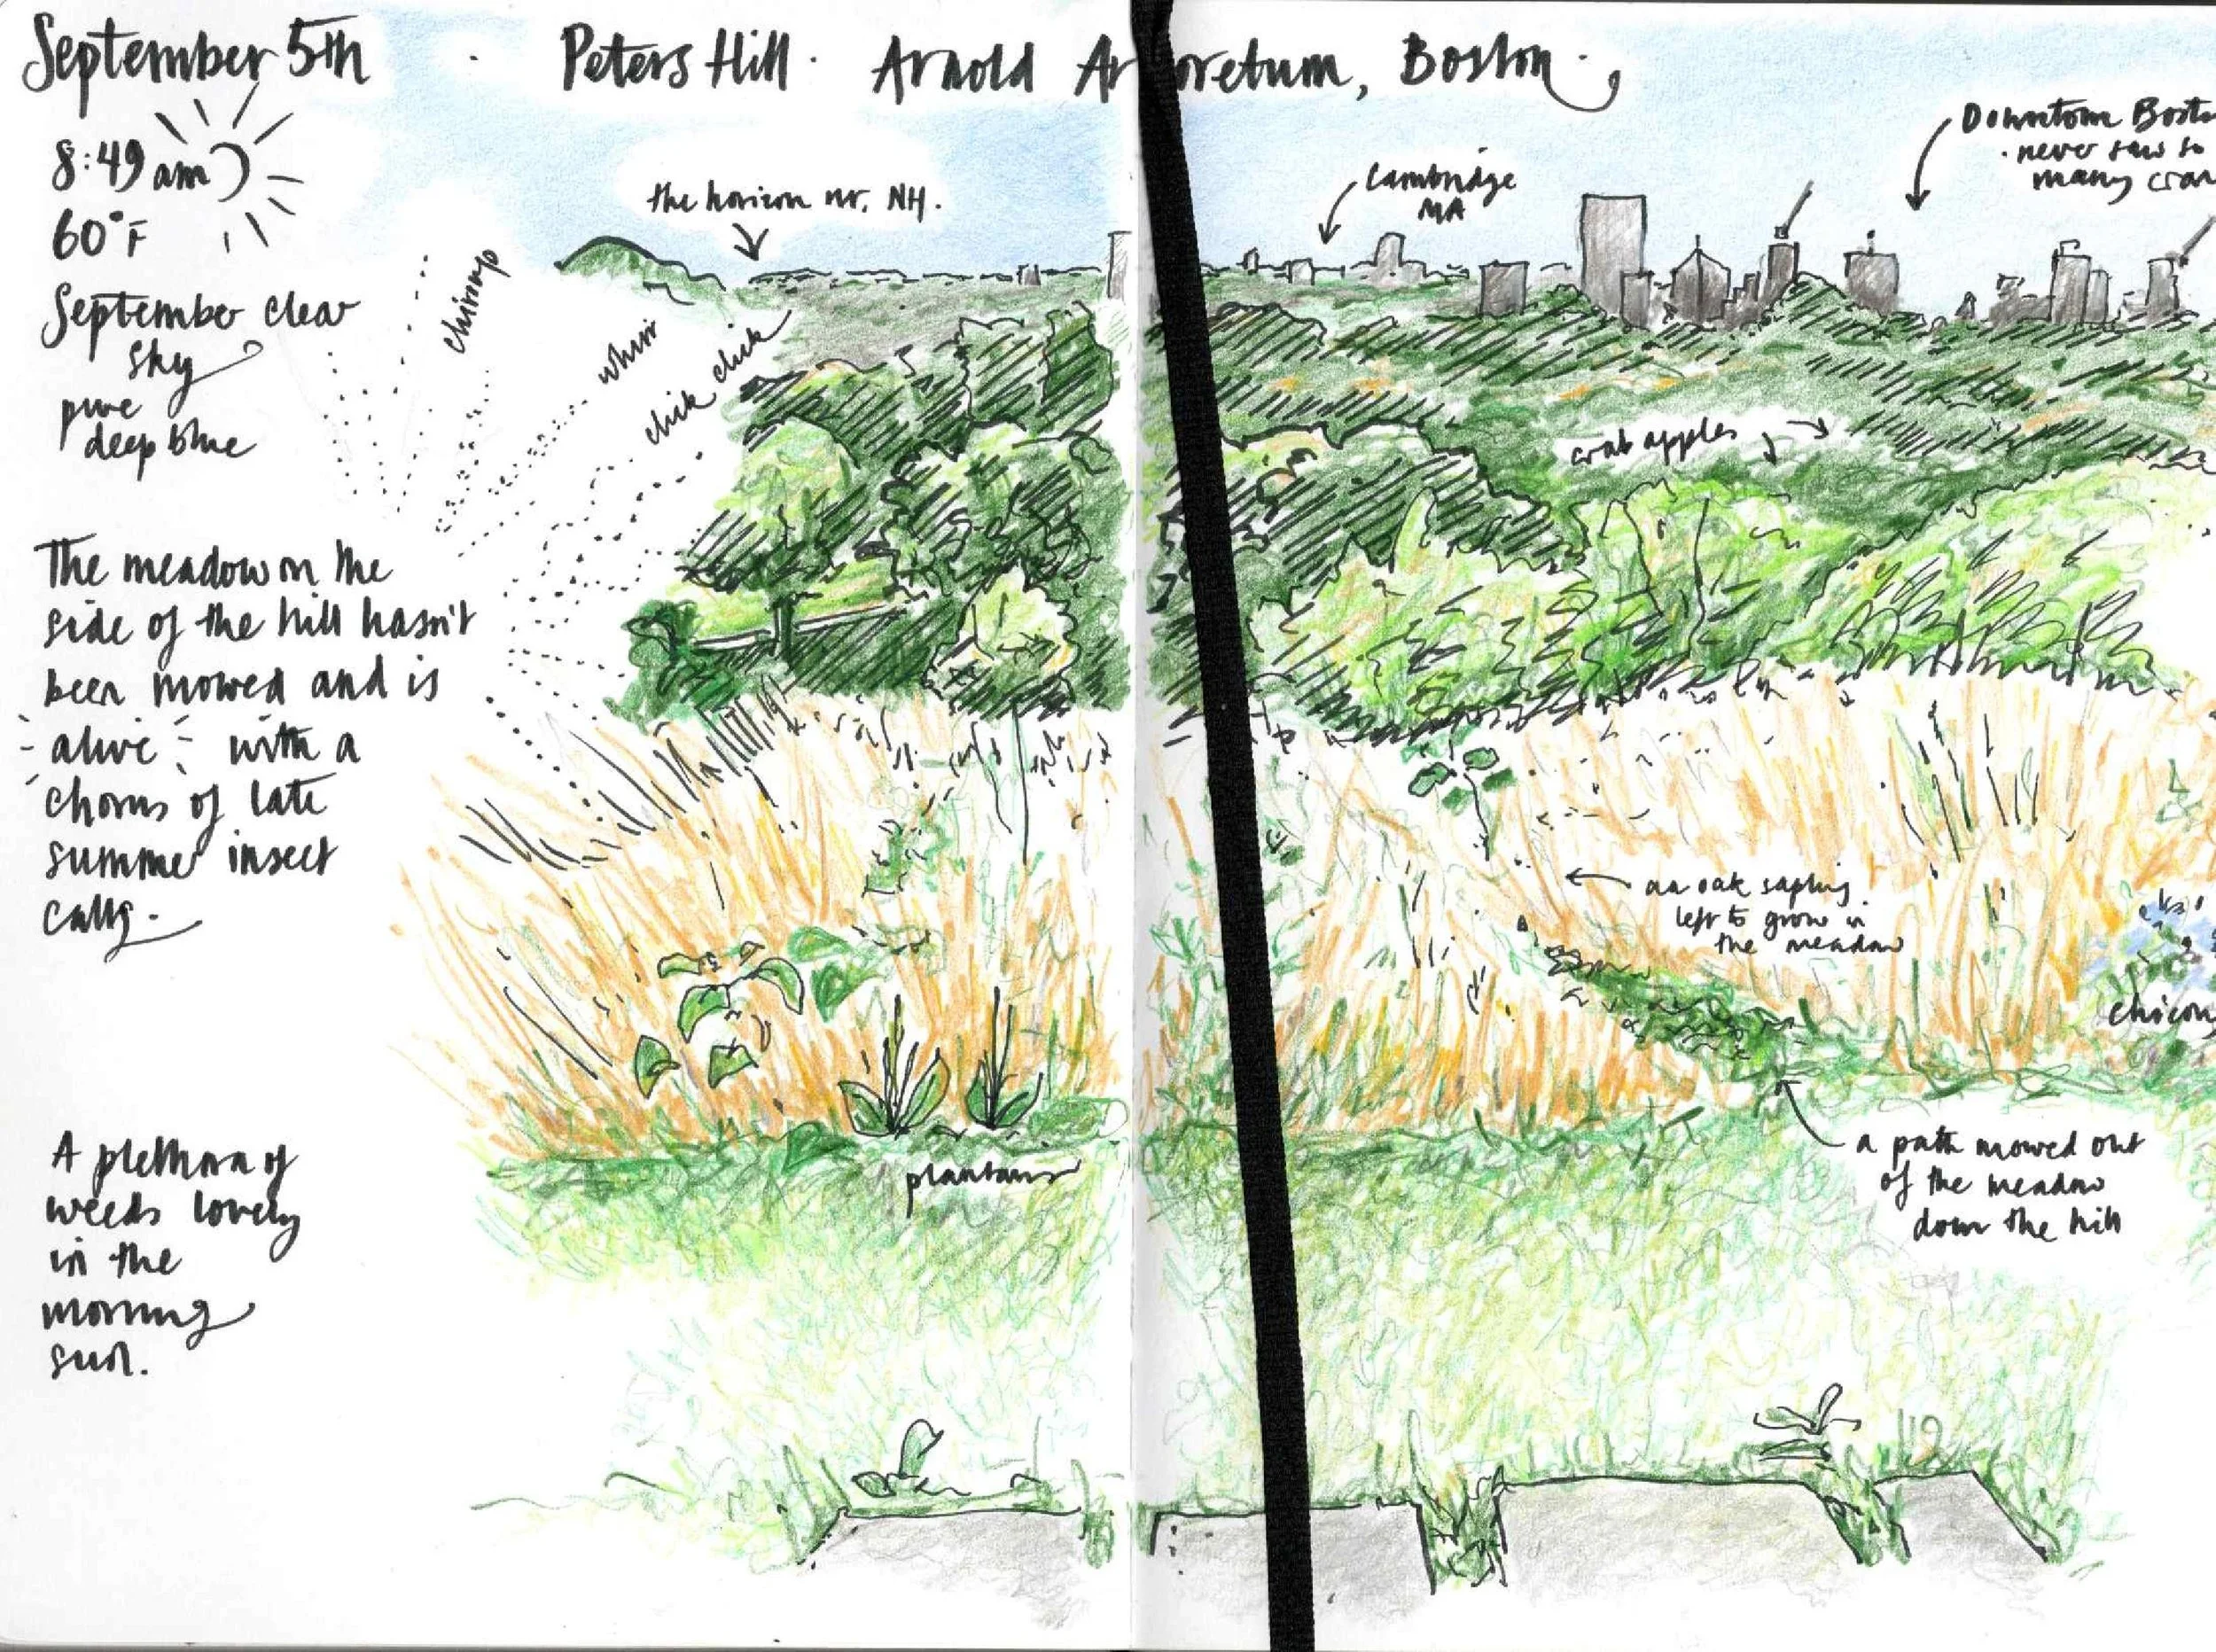 September 5th · Peters Hill · Arnold Ar oretum, Boston.
8:49 am
60°F
September clear
sky
pure
deep blue
chirrup
whirr
click click
the horizon nr. NH.
Cambridge
MA
Downtown Bost
· never saw so
many cran
crab apples
The meadow on the
side of the hill hasn't
been mowed and is
alive with a
chorus of late
summer insect
calls.
an oak sapling
left to grow in
the meadow
chicory
A plethora of
weeds lovely
in the
morning
sun.
plantains
a path mowed out
of the meadow
down the hill